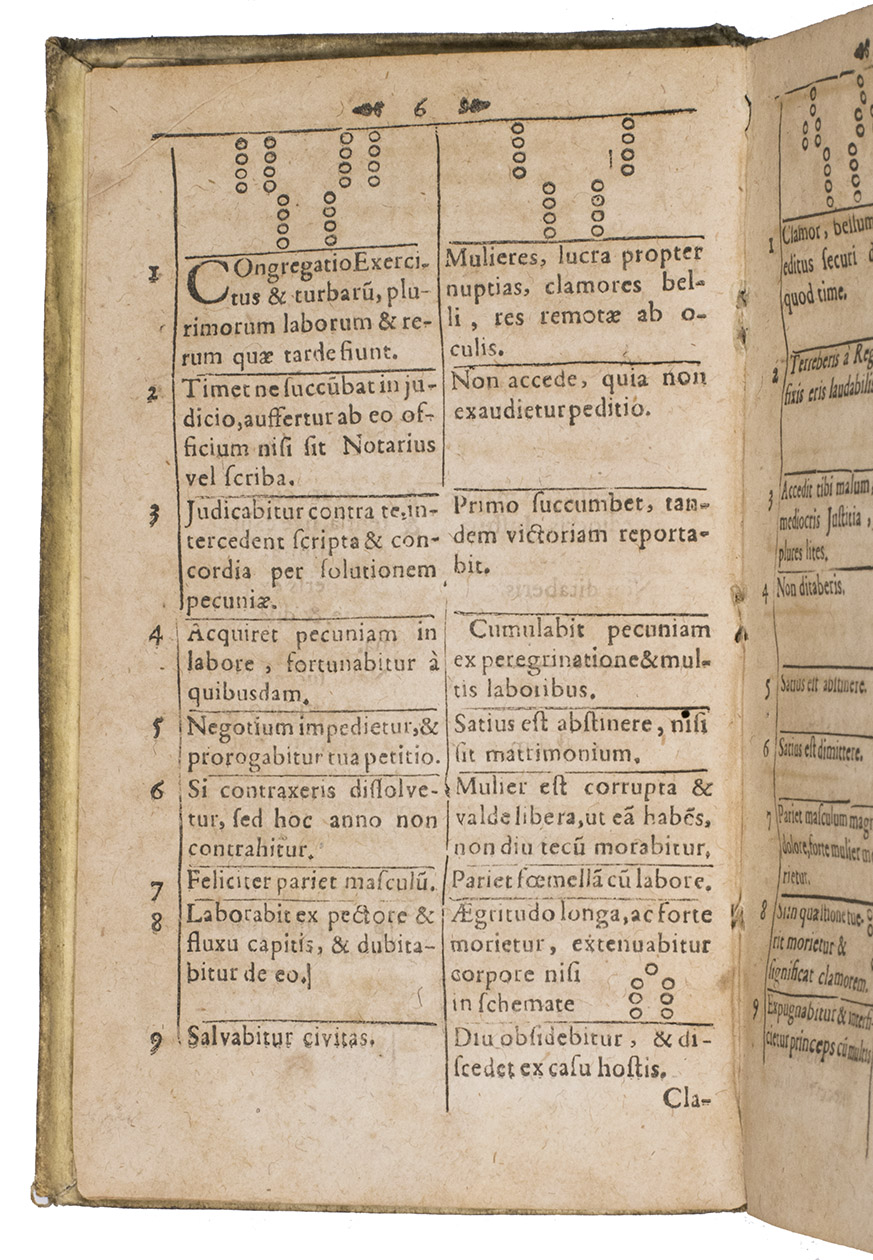 6
1
COngregatio Exerci-
tus & turbarū, plu-
rimorum laborum & re-
rum quæ tarde fiunt.
2
Timet ne ſuccūbat in ju-
dicio, auffertur ab eo of-
ficium niſi ſit Notarius
vel ſcriba.
3
Judicabitur contra te, in-
tercedent ſcripta & con-
cordia per ſolutionem
pecuniæ.
4
Acquiret pecuniam in
labore, fortunabitur à
quibusdam.
5
Negotium impedietur, &
prorogabitur tua petitio.
6
Si contraxeris diſſolve-
tur, ſed hoc anno non
contrahitur.
7
Feliciter pariet maſculū.
8
Laborabit ex pectore &
fluxu capitis, & dubita-
bitur de eo.
9
Salvabitur civitas.
Mulieres, lucra propter
nuptias, clamores bel-
li, res remotæ ab o-
culis.
Non accede, quia non
exaudietur peditio.
Primo ſuccumbet, tan-
dem victoriam reporta-
bit.
Cumulabit pecuniam
ex peregrinatione & mul-
tis laboribus.
Satius eſt abſtinere, niſi
ſit matrimonium.
Mulier eſt corrupta &
valde libera, ut eā habēs,
non diu tecū morabitur,
Pariet fœmellā cū labore.
Ægritudo longa, ac forte
morietur, extenuabitur
corpore niſi
in ſchemate
Diu obſidebitur, & di-
ſcedet ex caſu hoſtis.
Cla-
1
Clamor, bellum
editus ſecuri
quod time.
2
Terreberis à Reg
fixis eris laudabili
3
Accedit tibi malum,
mediocris Juſtitia,
plures lites.
4
Non ditaberis.
5
Satius eſt abſtinere.
6
Satius eſt dimittere.
7
Pariet maſculum magn
dolore, forte mulier mo
rietur.
8
rit morietur &
ſignificat clamorem.
9
Expugnabitur & interfi-
cietur princeps cū multis